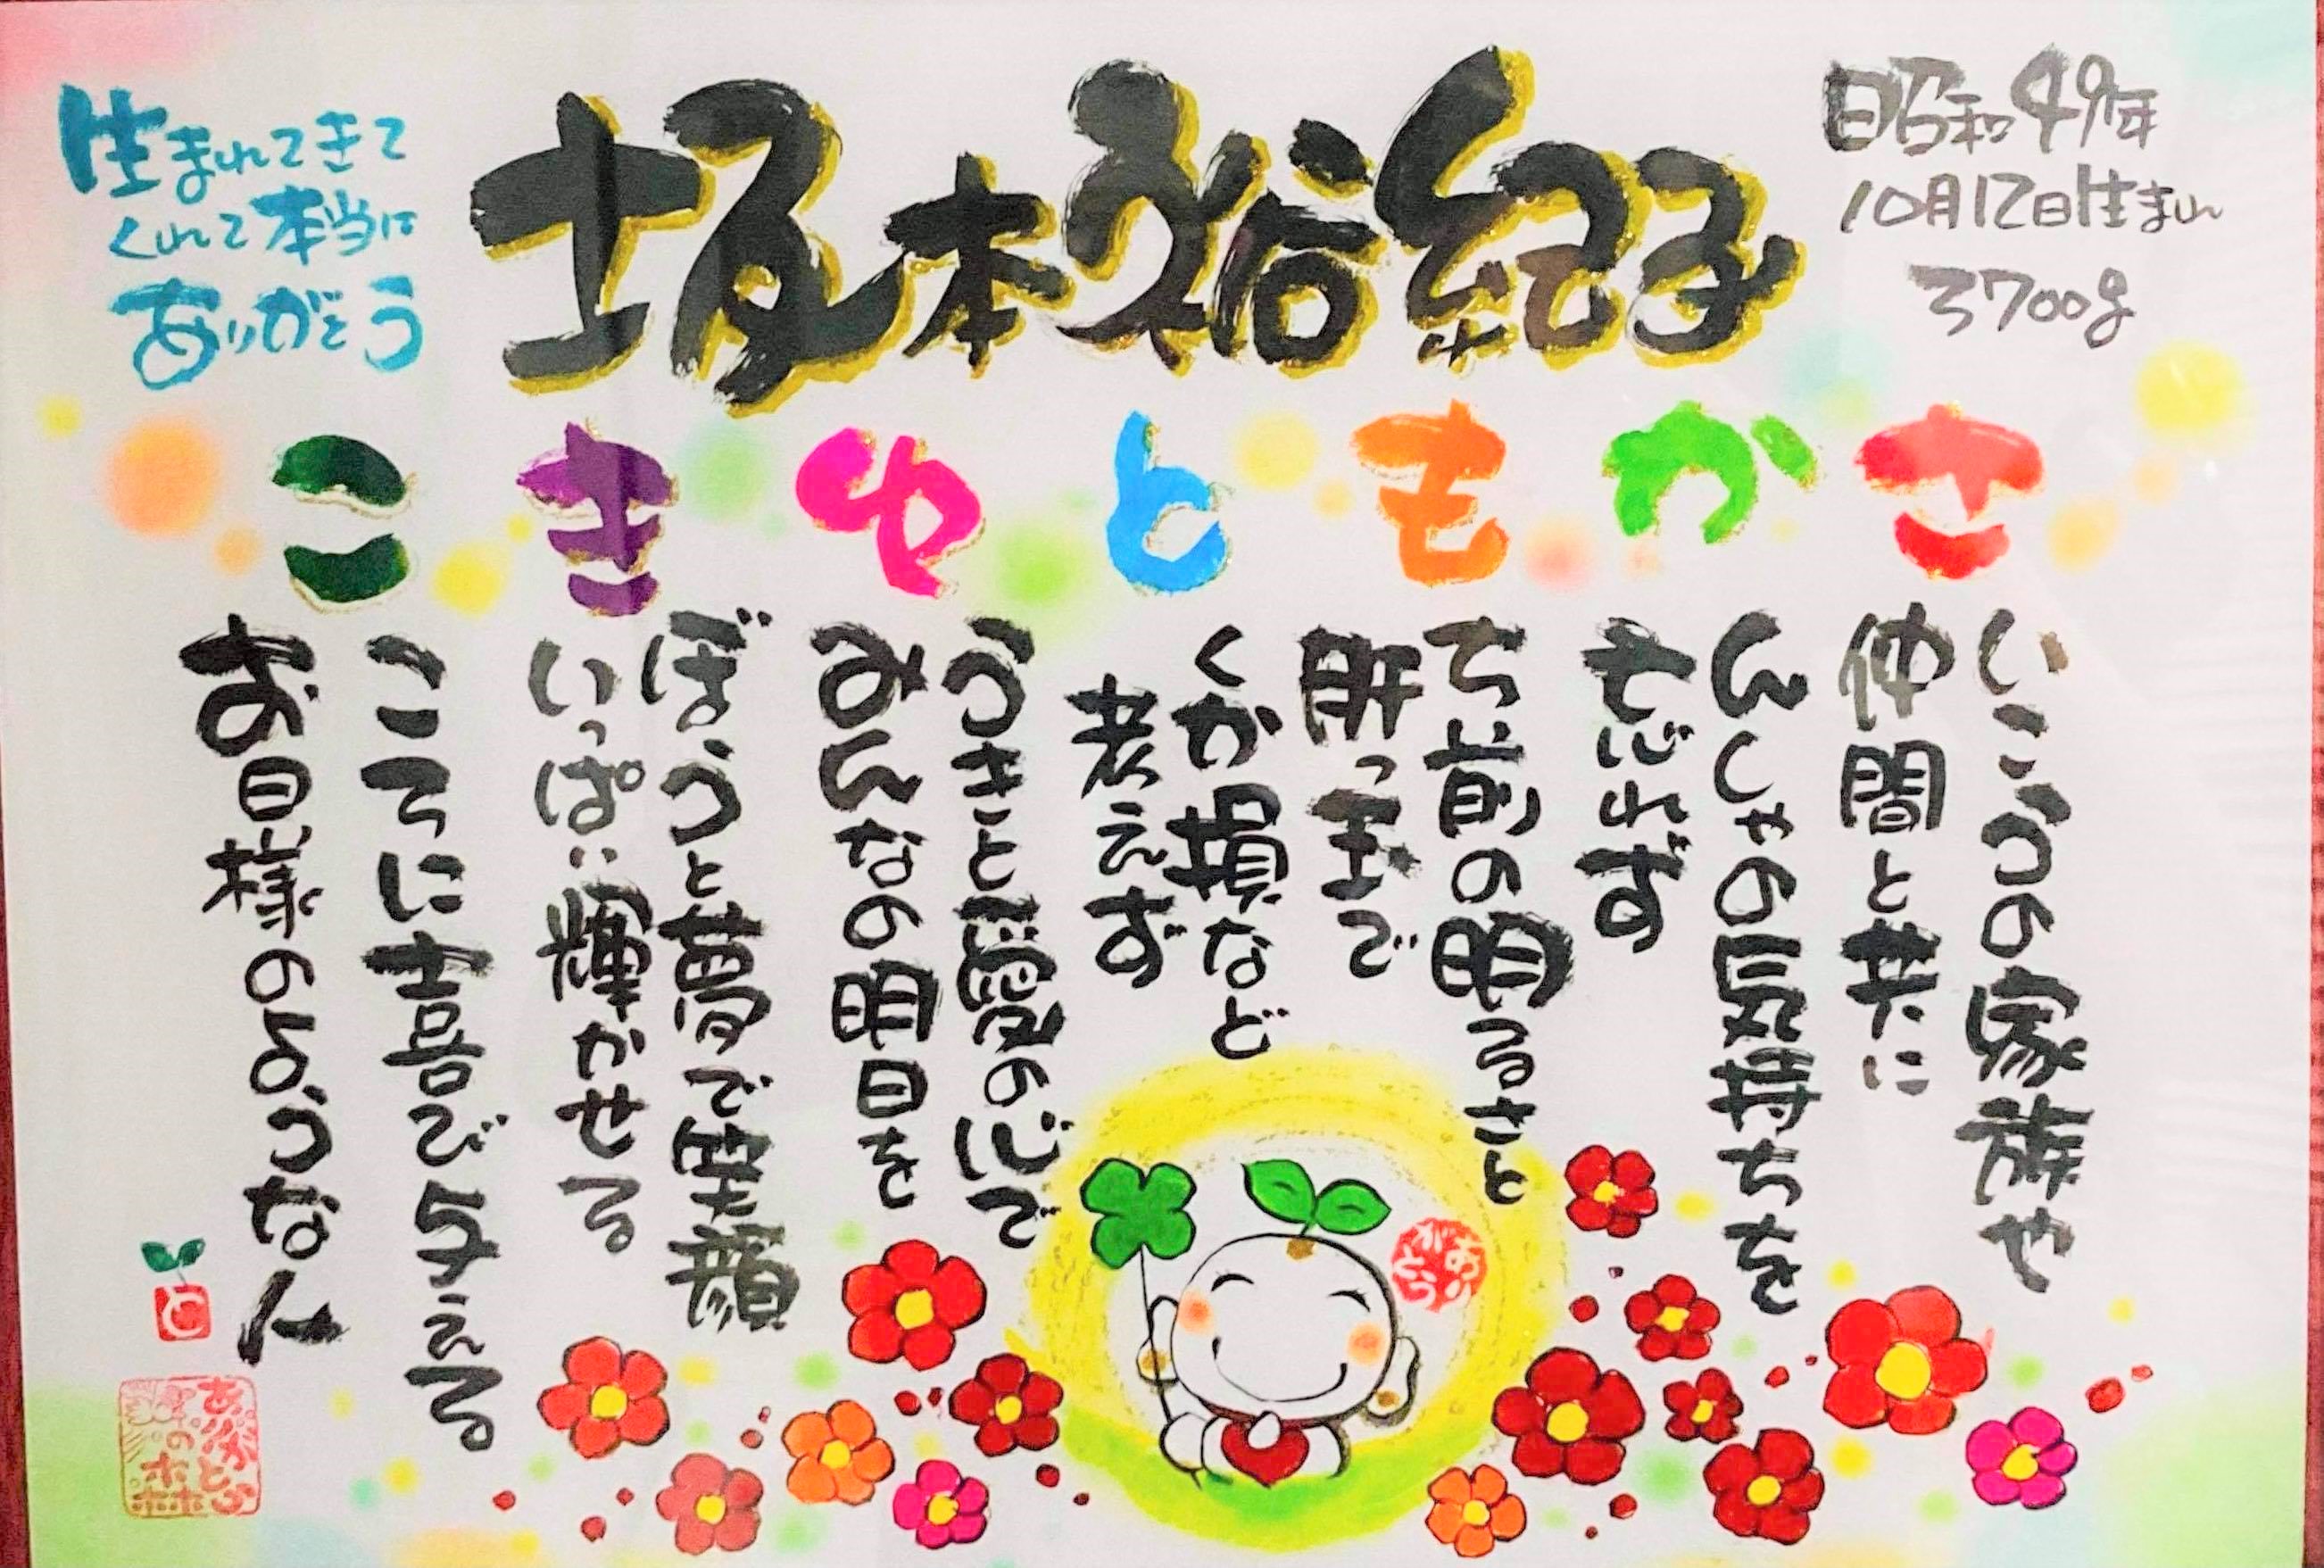 昭和49年
10月12日生まれ
3700g
坂本裕紀子
生まれてきて
くれて本当に
ありがとう
さいこうの家族や
仲間と共に
かんしゃの気持ちを
忘れず
もち前の明るさと
肝っ玉で
とくか損など
考えず
ゆうきと愛の心で
みんなの明日を
きぼうと夢で笑顔
いっぱい輝かせる
ここてに喜び与える
お日様のような人
ありがとう
と
ありがとうの森